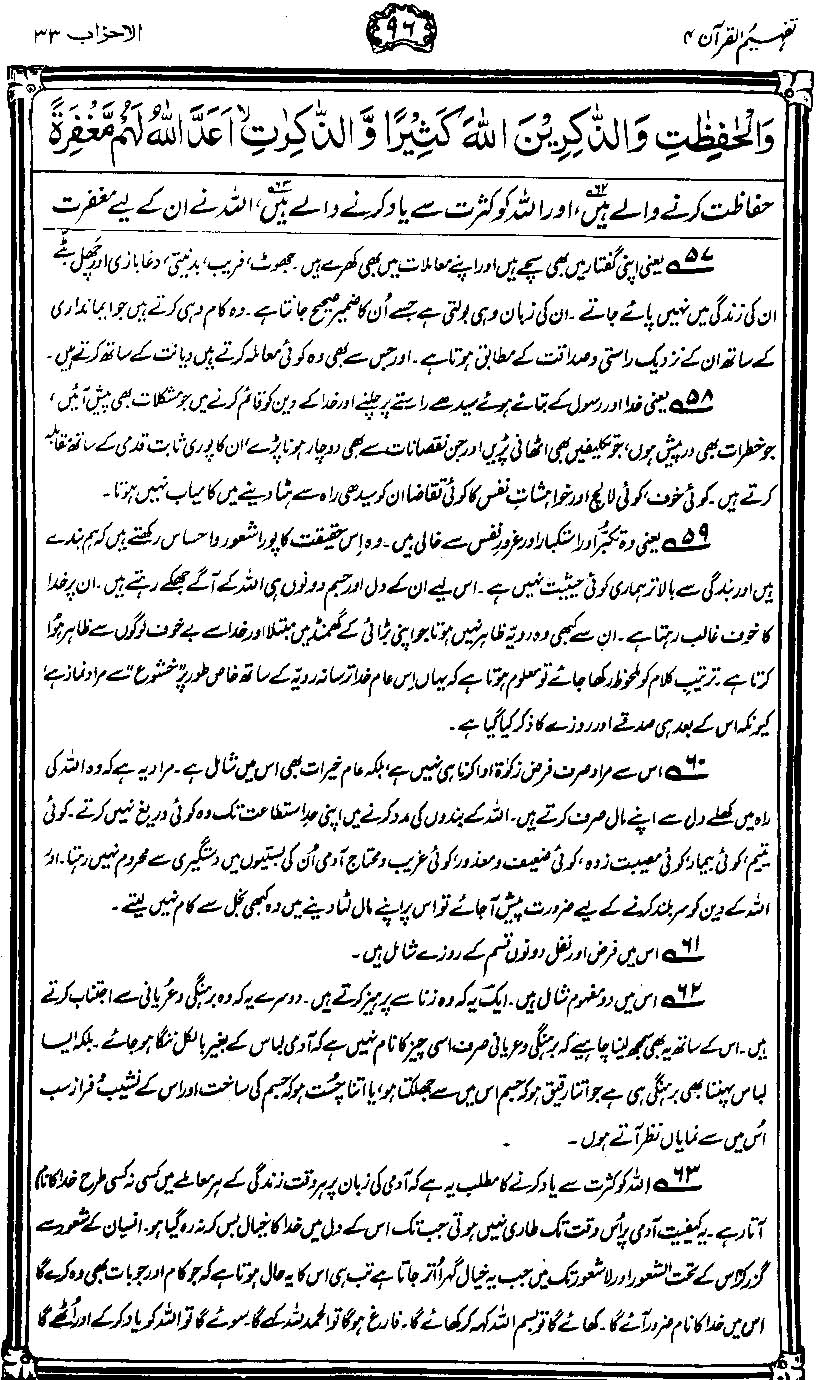 تفہیم القرآن ۴
۹۶
الاحزاب ۳۳
وَالْحٰفِظٰتِ وَالذّٰكِرِيْنَ اللّٰهَ كَثِيْرًا وَّالذّٰكِرٰتِ ۙ اَعَدَّ اللّٰهُ لَهُمْ مَّغْفِرَةً
حفاظت کرنے والے ہیں۶۲، اور اللہ کو کثرت سے یاد کرنے والے ہیں۶۳، اللہ نے ان کے لیے مغفرت
۵۷ یعنی اپنی گفتار میں بھی سچے ہیں اور اپنے معاملات میں بھی کھرے ہیں۔ جھوٹ، فریب، بدنیتی، دغا بازی اور چھل بٹے
ان کی زندگی میں نہیں پائے جاتے۔ ان کی زبان وہی بولتی ہے جسے اُن کا ضمیر صحیح جانتا ہے۔ وہ کام وہی کرتے ہیں جو ایمانداری
کے ساتھ ان کے نزدیک راستی و صداقت کے مطابق ہوتا ہے۔ اور جس سے بھی وہ کوئی معاملہ کرتے ہیں دیانت کے ساتھ کرتے ہیں۔
۵۸ یعنی خدا اور رسول کے بتائے ہوئے سیدھے راستے پر چلنے اور خدا کے دین کو قائم کرنے میں جو مشکلات بھی پیش آئیں،
جو خطرات بھی درپیش ہوں، جو تکلیفیں بھی اٹھانی پڑیں اور جن نقصانات سے بھی دوچار ہونا پڑے، ان کا پوری ثابت قدمی کے ساتھ مقابلہ
کرتے ہیں۔ کوئی خوف، کوئی لالچ اور خواہشاتِ نفس کا کوئی تقاضا ان کو سیدھی راہ سے ہٹا دینے میں کامیاب نہیں ہوتا۔
۵۹ یعنی وہ تکبّر اور استکبار اور غرورِ نفس سے خالی ہیں۔ وہ اِس حقیقت کا پورا شعور و احساس رکھتے ہیں کہ ہم بندے
ہیں اور بندگی سے بالاتر ہماری کوئی حیثیت نہیں ہے۔ اس لیے ان کے دل اور جسم دونوں ہی اللہ کے آگے جھکے رہتے ہیں۔ ان پر خدا
کا خوف غالب رہتا ہے۔ ان سے کبھی وہ رویّہ ظاہر نہیں ہوتا جو اپنی بڑائی کے گھمنڈ میں مبتلا اور خدا سے بے خوف لوگوں سے ظاہر ہُوا
کرتا ہے۔ ترتیبِ کلام کو ملحوظ رکھا جائے تو معلوم ہوتا ہے کہ یہاں اِس عام خدا ترسانہ رویّہ کے ساتھ خاص طور پر "خشوع" سے مراد نماز ہے،
کیونکہ اس کے بعد ہی صدقے اور روزے کا ذکر کیا گیا ہے۔
۶۰ اس سے مراد صرف فرض زکوٰۃ ادا کرنا ہی نہیں ہے، بلکہ عام خیرات بھی اس میں شامل ہے۔ مراد یہ ہے کہ وہ اللہ کی
راہ میں کھلے دل سے اپنے مال صرف کرتے ہیں۔ اللہ کے بندوں کی مدد کرنے میں اپنی حدِ استطاعت تک وہ کوئی دریغ نہیں کرتے۔ کوئی
یتیم، کوئی بیمار، کوئی مصیبت زدہ، کوئی ضعیف و معذور، کوئی غریب و محتاج آدمی اُن کی بستیوں میں دستگیری سے محروم نہیں رہتا۔ اور
اللہ کے دین کو سربلند کرنے کے لیے ضرورت پیش آ جائے تو اس پر اپنے مال لٹا دینے میں وہ کبھی بخل سے کام نہیں لیتے۔
۶۱ اس میں فرض اور نفل دونوں قسم کے روزے شامل ہیں۔
۶۲ اس میں دو مفہوم شامل ہیں۔ ایک یہ کہ وہ زنا سے پرہیز کرتے ہیں۔ دوسرے یہ کہ وہ برہنگی و عُریانی سے اجتناب کرتے
ہیں۔ اس کے ساتھ یہ بھی سمجھ لینا چاہیے کہ برہنگی و عریانی صرف اسی چیز کا نام نہیں ہے کہ آدمی لباس کے بغیر بالکل ننگا ہو جائے۔ بلکہ ایسا
لباس پہننا بھی برہنگی ہی ہے جو اتنا رقیق ہو کہ جسم اس میں سے جھلکتا ہو، یا اتنا چُست ہو کہ جسم کی ساخت اور اس کے نشیب و فراز سب
اُس میں سے نمایاں نظر آتے ہوں۔
۶۳ اللہ کو کثرت سے یاد کرنے کا مطلب یہ ہے کہ آدمی کی زبان پر ہر وقت زندگی کے ہر معاملے میں کسی نہ کسی طرح خدا کا نام
آتا رہے۔ یہ کیفیت آدمی پر اُس وقت تک طاری نہیں ہوتی جب تک اس کے دل میں خدا کا خیال بس کر نہ رہ گیا ہو۔ انسان کے شعور سے
گزر کر اس کے تحت الشعور اور لاشعور تک میں جب یہ خیال گہرا اُتر جاتا ہے تب ہی اس کا یہ حال ہوتا ہے کہ جو کام اور جو بات بھی وہ کرے گا
اس میں خدا کا نام ضرور آئے گا۔ کھائے گا تو بسم اللہ کہہ کر کھائے گا۔ فارغ ہوگا تو الحمد للہ کہے گا۔ سوئے گا تو اللہ کو یاد کر کے اور اُٹھے گا